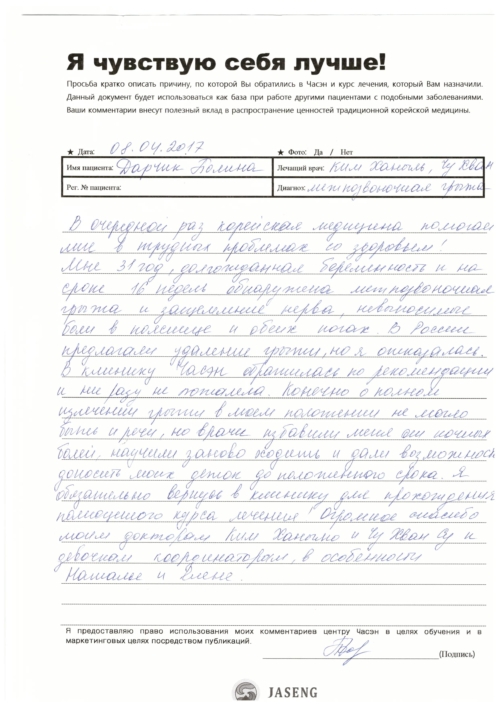 Я чувствую себя лучше!
Просьба кратко описать причину, по которой Вы обратились в Часэн и курс лечения, который Вам назначили.
Данный документ будет использоваться как база при работе другими пациентами с подобными заболеваниями.
Ваши комментарии внесут полезный вклад в распространение ценностей традиционной корейской медицины.
★ Дата: 08.04.2017 ★ Фото: Да / Нет
Имя пациента: Дарчик Полина Лечащий врач: Ким Ханголь, Чу Хван
Рег. № пациента: Диагноз: межпозвоночная грыжа
В очередной раз корейская медицина помогает
мне в трудных проблемах со здоровьем!
Мне 31 год, долгожданная беременность и на
сроке 16 недель обнаружена межпозвоночная
грыжа и защемление нерва, невыносимые
боли в пояснице и обеих ногах. В России
предлагали удаление грыжи, но я отказалась.
В клинику Часэн обратилась по рекомендации
и ни разу не пожалела. Конечно о полном
излечении грыжи в моем положении не могло
быть и речи, но врачи избавили меня от ночных
болей, научили заново ходить и дали возможность
доносить моих деток до положенного срока. Я
обязательно вернусь в клинику для прохождения
полноценного курса лечения Огромное спасибо
моим докторам Ким Ханголю и Чу Хван Су и
девочкам координаторам, в особенности
Наталье и Элене.
Я предоставляю право использования моих комментариев центру Часэн в целях обучения и в
маркетинговых целях посредством публикаций.
(Подпись)
JASENG